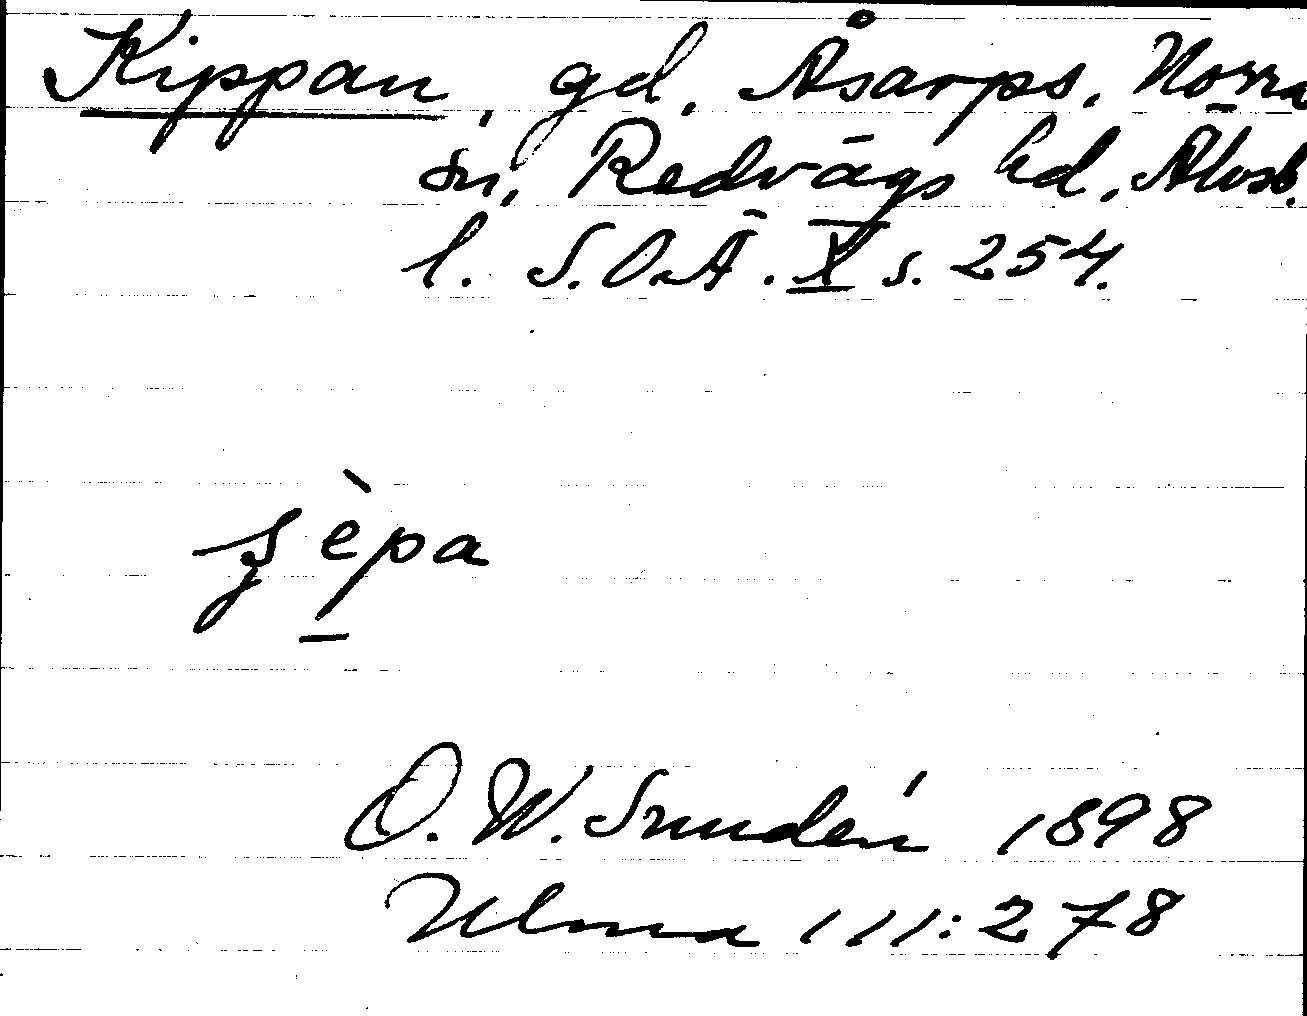 Kippan, gd, Åsarps, Norra
sn, Redvägs hd, Älvsb.
l. S.O.Ä. X s. 254.
èpa
D. W. Sundén 1898
Ulma 111:278